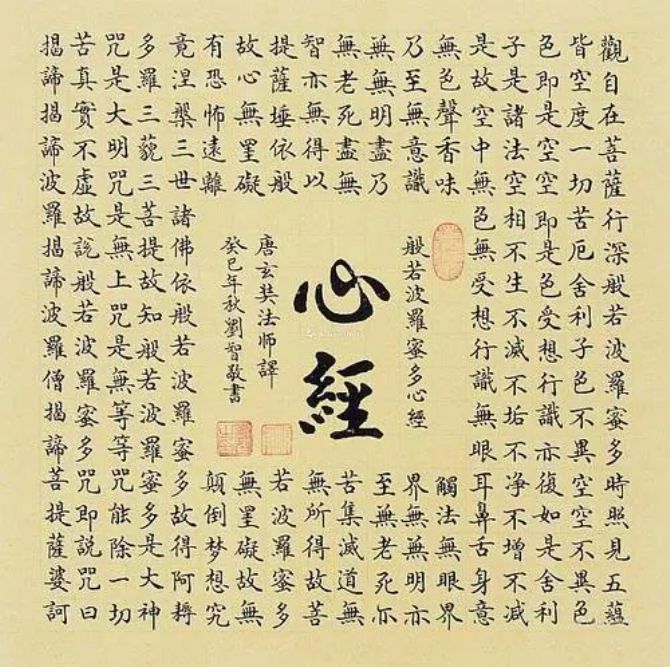 觀自在菩薩行深般若波羅蜜多時照見五蘊
皆空度一切苦厄舍利子色不異空空不異色
色即是空空即是色受想行識亦復如是舍利
子是諸法空相不生不滅不垢不净不增不減
是故空中無色無受想行識無眼耳鼻舌身意
無色聲香味
觸法無眼界
乃至無意識
界無無明亦
無無明盡乃
至無老死亦
無老死盡無
苦集滅道無
智亦無得以
無所得故菩
提薩埵依般
若波羅蜜多
故心無罣礙
無罣礙故無
有恐怖遠離
顛倒梦想究
竟涅槃三世諸佛依般若波羅蜜多故得阿耨
多羅三藐三菩提故知般若波羅蜜多是大神
咒是大明咒是無上咒是無等等咒能除一切
苦真實不虛故說般若波羅蜜多咒即說咒曰
揭諦揭諦波羅揭諦波羅僧揭諦菩提薩婆訶
般若波羅蜜多心經
心經
唐玄奘法師譯
癸巳年秋劉智敬書